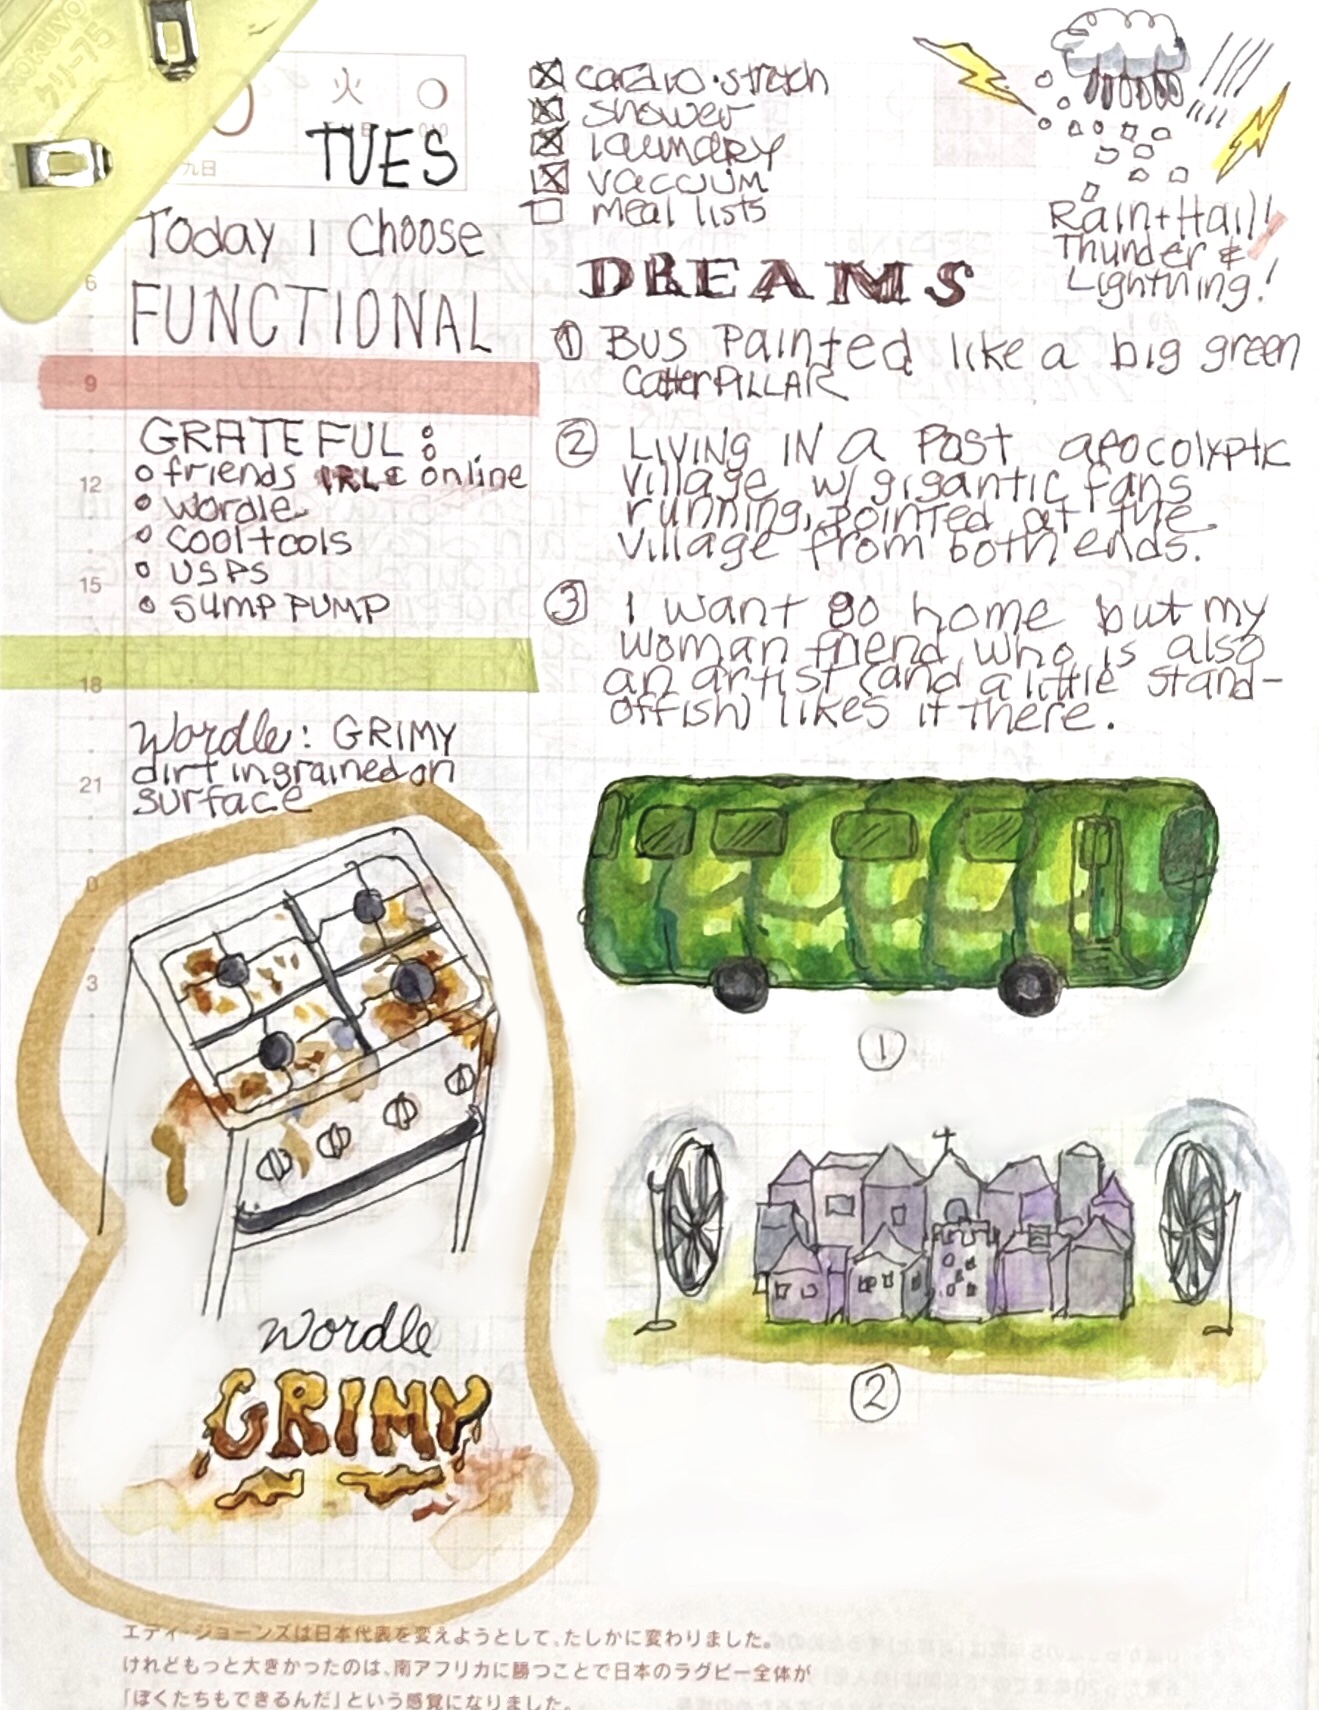 KOKUYO
ケリ-75
火
TUES
九日
Today I Choose
FUNCTIONAL
6
9
GRATEFUL:
friends IRL & online
12
wordle
cool tools
USPS
15
SUMP PUMP
18
Wordle: GRIMY
dirt ingrained on
21
surface
0
3
wordle
GRIMY
cardio·stretch
shower
laundry
vaccuum
meal lists
Rain + Hail!
Thunder &
Lightning!
DREAMS
① BUS Painted like a big green
CatterPILLAR
② LIVING IN a Post apocolyptic
Village w/ gigantic fans
running, pointed at the
Village from both ends.
③ I want go home but my
woman friend, who is also
an artist (and a little stand-
offish) likes it there.
①
②
エディ・ジョーンズは日本代表を変えようとして、たしかに変わりました。
けれどもっと大きかったのは、南アフリカに勝つことで日本のラグビー全体が
「ぼくたちもできるんだ」という感覚になりました。